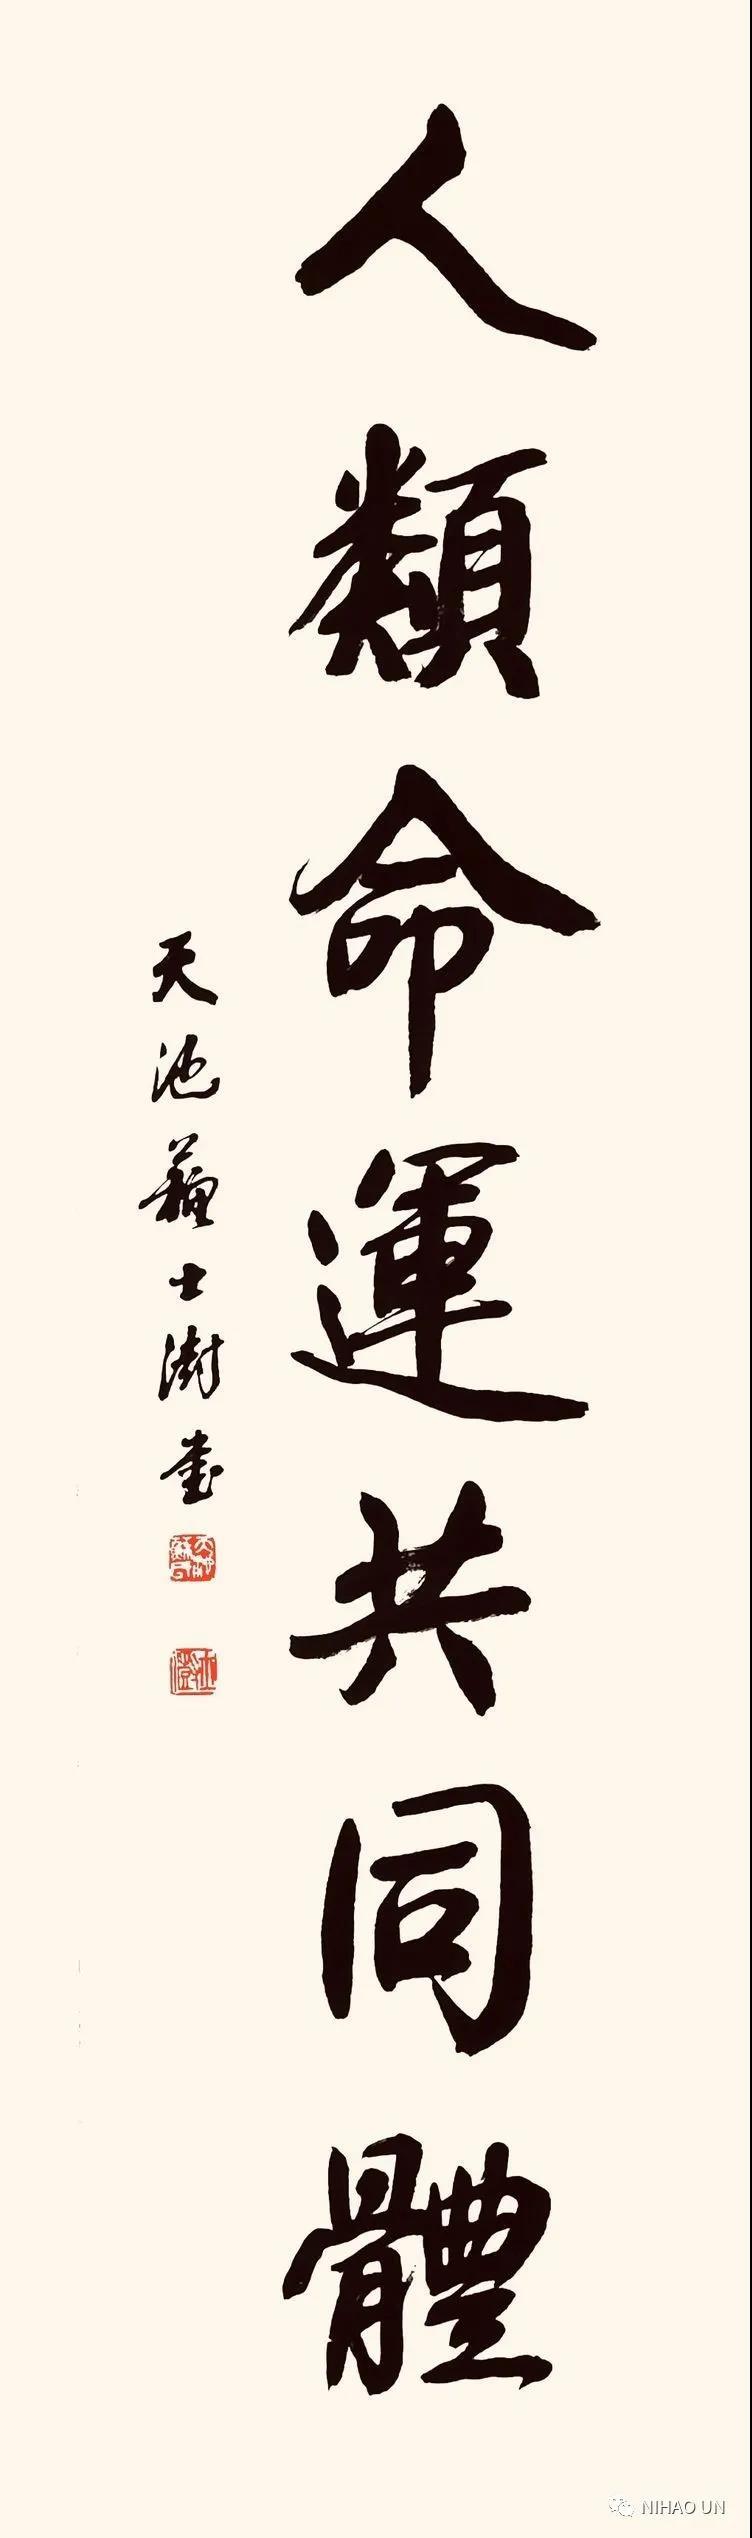 人類命運共同體
天池蘇士澍書
NIHAO UN